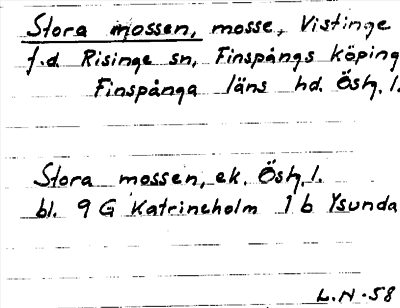 Stora mossen, mosse, Vistinge
f.d. Risinge sn, Finspångs köping
Finspånga läns hd. Östg. l.
Stora mossen, ek. Östg. l.
bl. 9 G Katrineholm 1 b Ysunda
L.N.58